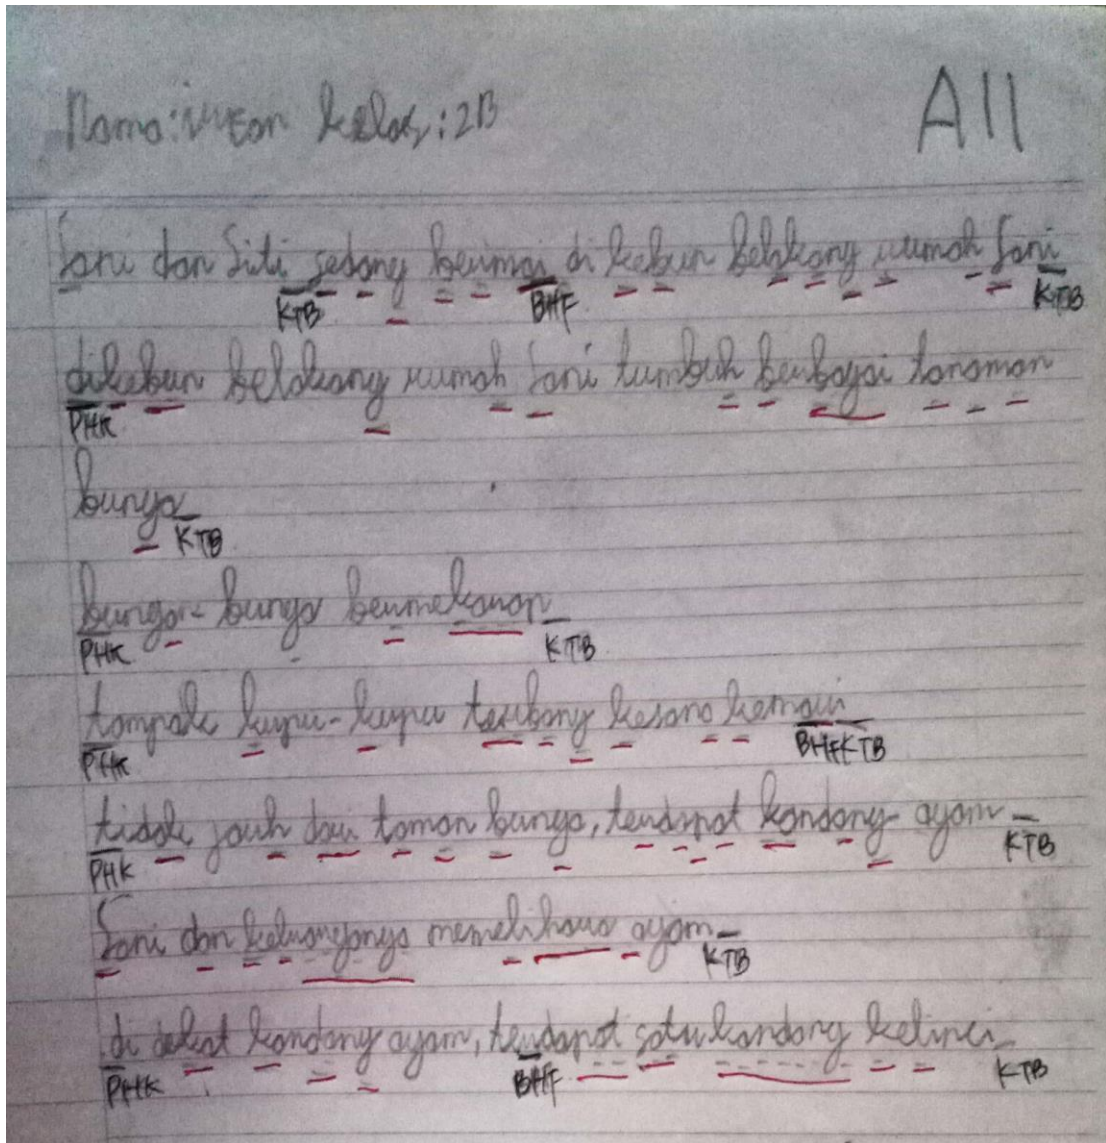 Nama: kelas: 2B A11
Sani dan Siti sedang bermai di kebun belakang rumah Sani
KTB BHF KTB
dikebun belakang rumah Sani tumbuh berbagai tanaman
PHK
bunga
KTB
bunga-bunga bermekaran
PHK KTB
tampak kupu-kupu terbang kesana kemari
PHK BHF KTB
tidak jauh dari taman bunga, terdapat kandang ayam
PHK KTB
Sani dan keluarganya memelihara ayam
KTB
di dekat kandang ayam, terdapat satu kandang kelinci
PHK BHF KTB